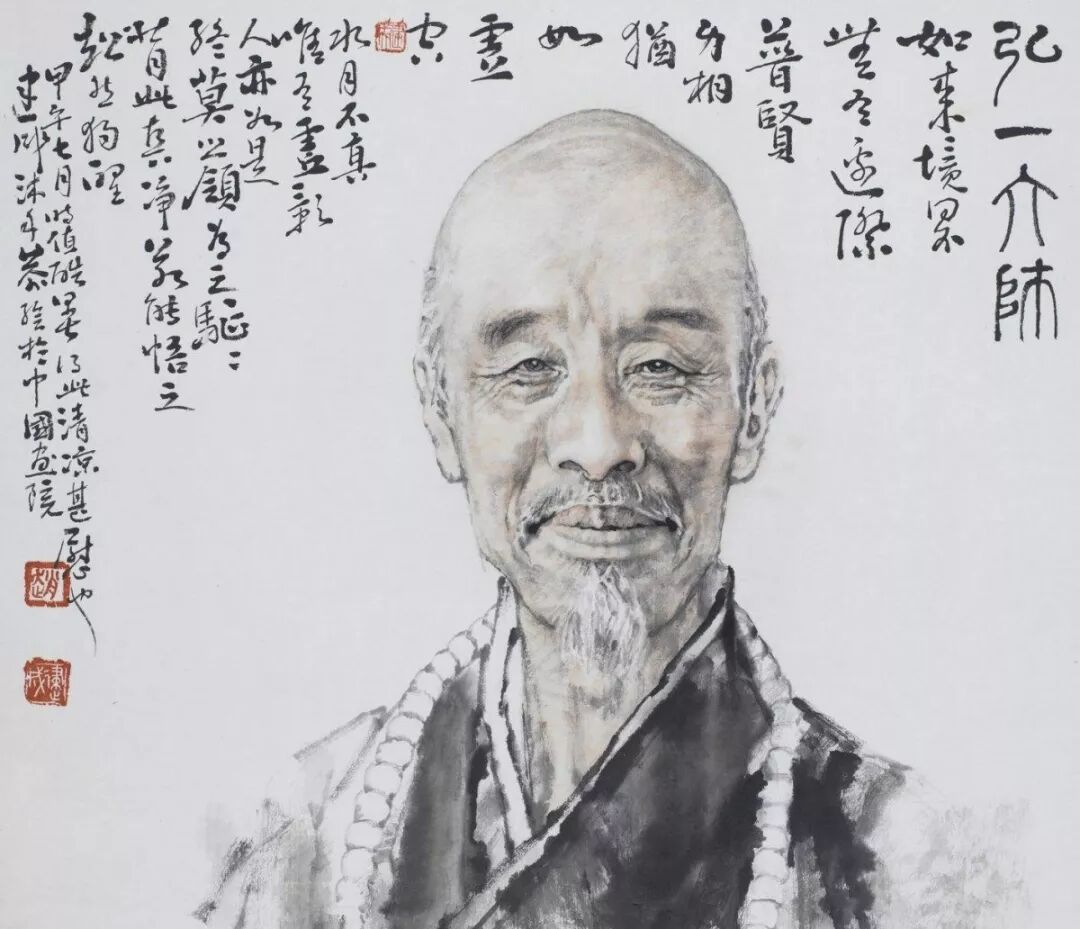 弘一大師
如來境界
無有邊際
普賢
身相
猶
如
虛
空
水月不真
唯有虛影
人亦如是
終莫之領為之驅〻
背此真淨若能悟之
超然獨醒
甲午七月時值酷暑得此清涼甚慰也
建成沐手恭繪於中國畫院
趙
建成